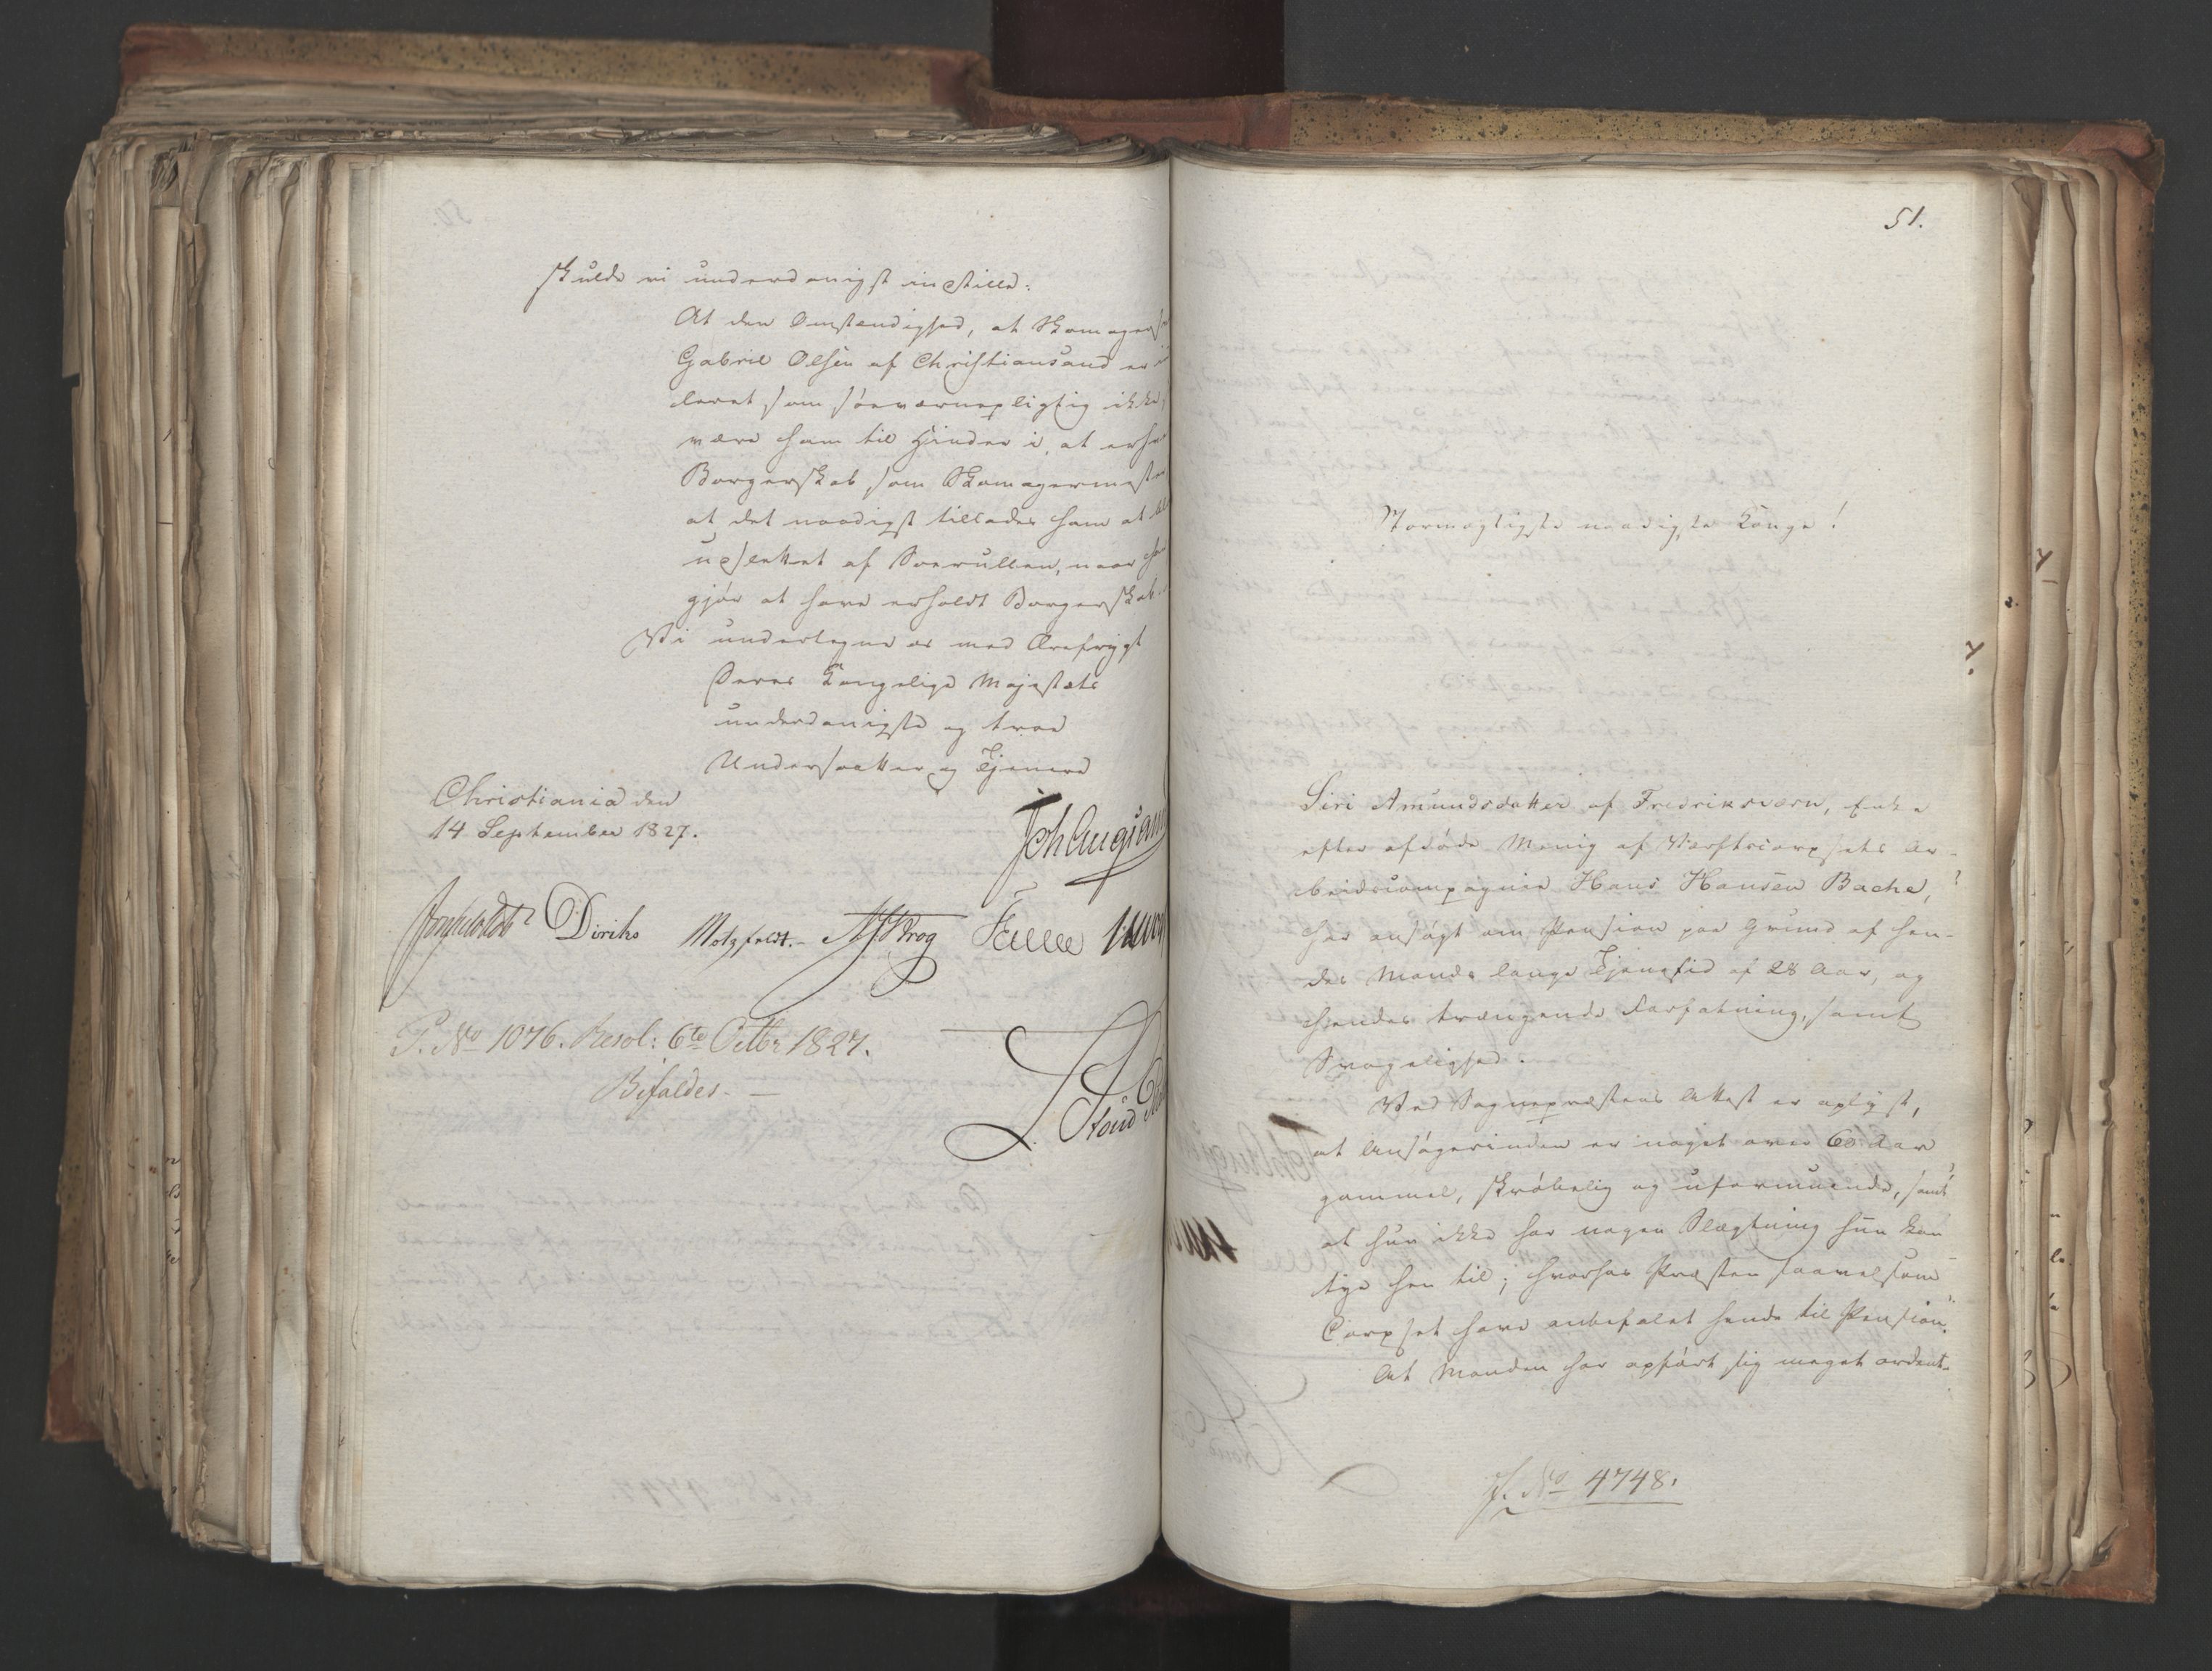 skulde vi underdanigst instille:
At den Omstændighed, at Skomagers
Gabriel Olsen af Christiansand er
leret som søeværnepligtig ikke
være ham til Hinder i, at erh
Borgerskab som Skomagermester
at det naadigst tillades ham at
udslettet af Søerullen, naar ha
gjør at have erholdt Borgerskab
Vi undertegne os med Ærefrygt
Deres Kongelige Majestæts
underdanigste og troe
Undersaatter og Tjenere
Christiania den
14 September 1827.
Joh Aug San
Diriks Motzfeldt. Krog Fasting
P. No 1076. Resol: 6te Octbr 1827.
Bifaldes.
51.
Stormægtigste naadigste Konge!
Siri Amundsdatter af Fredriksværn, Enke
efter afdøde Menig af Værftscorpsets Ar-
beidscompagnie Hans Hansen Bache,
har ansøgt om Pension paa Grund af hen-
des Mands lange Tjenstid af 28 Aar, og
hendes trængende Forfatning, samt
Svagelighed.
Ved Sognepræstens Attest er oplyst,
at Ansøgerinden er noget over 60 Aar
gammel, skrøbelig og uformuende, samt
at hun ikke har nogen Slægtning hun kan
tye hen til; hvorhos Præsten saavelsom
Corpset have anbefalet hende til Pension.
At Manden har opført sig meget ordent-
J. No 4748.